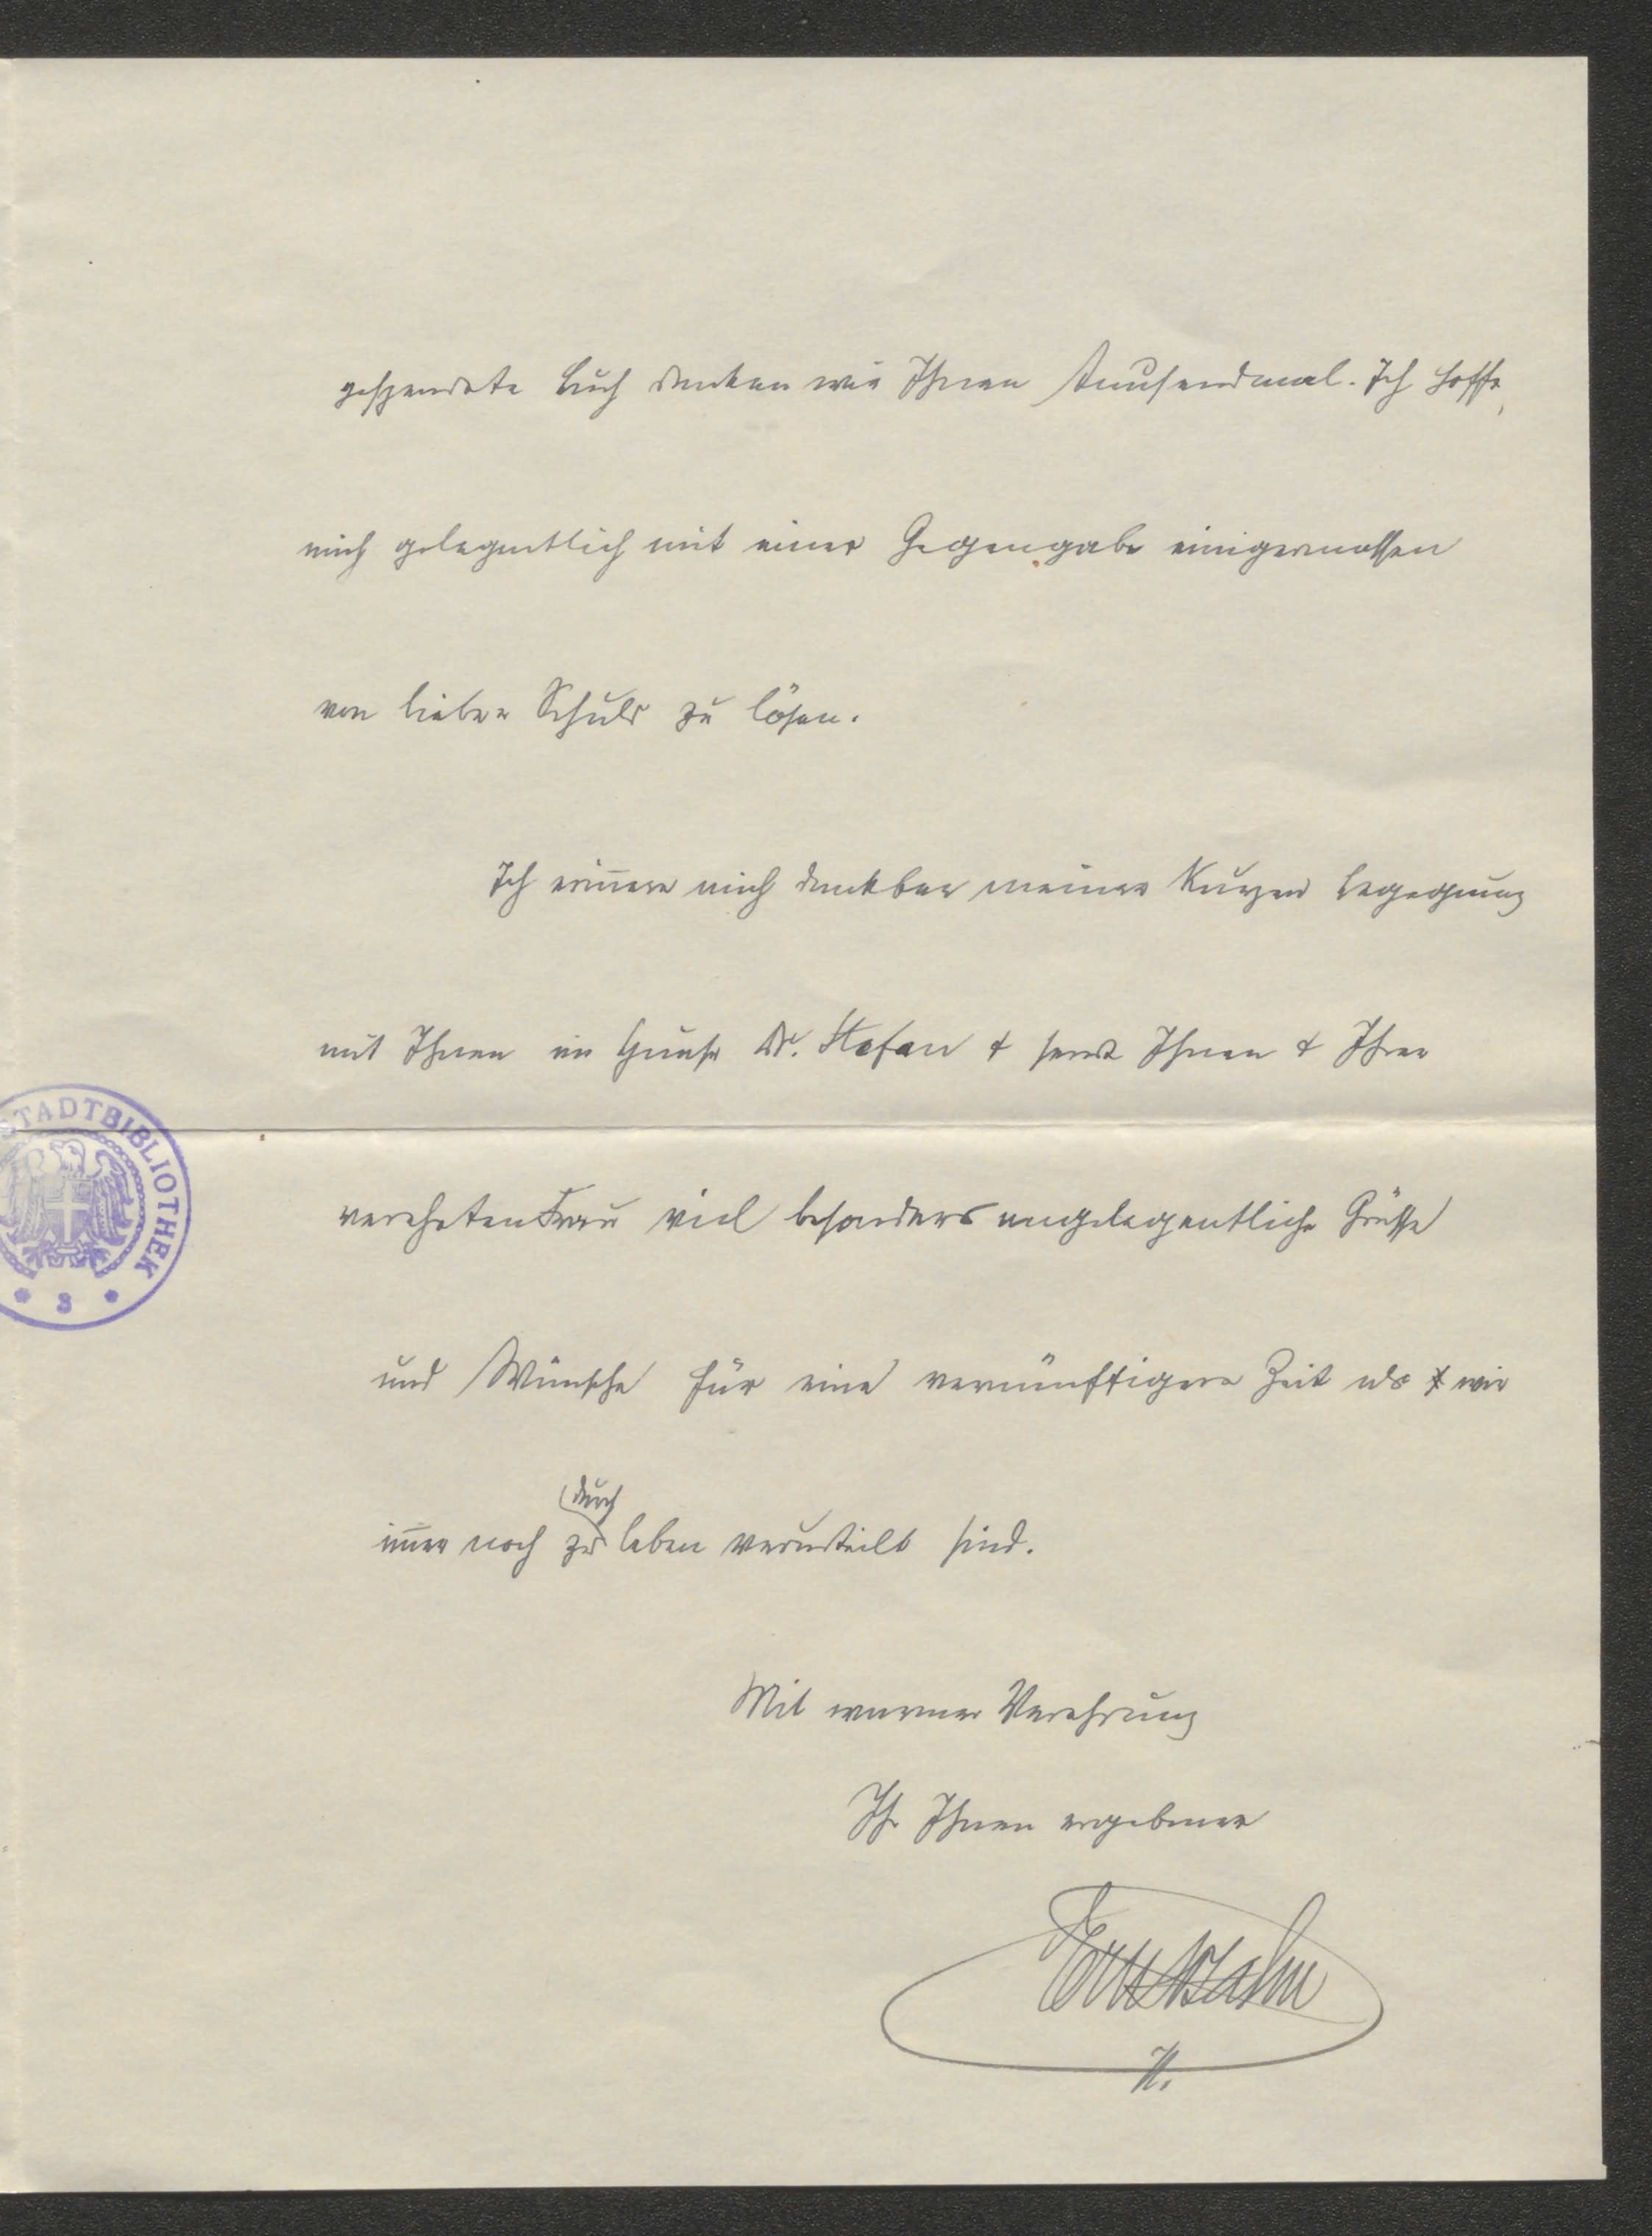 gespendete Buch danken wir Ihnen tausendmal. Ich hoffe,
mich gelegentlich mit einer Gegengabe einigermassen
von lieber Schuld zu lösen.
Ich erinnere mich dankbar meiner kurzen Begegnung
mit Ihnen im Hause Dr. Stefan & sende Ihnen & Ihrer
verehrten Frau viel besonders angelegentliche Grüsse
und Wünsche für eine vernünftigere Zeit als wir
durch
immer noch zu leben verurteilt sind.
Mit warmer Verehrung
Ihr Ihnen ergebener
Ernst Zahn
STADTBIBLIOTHEK
* 3 *